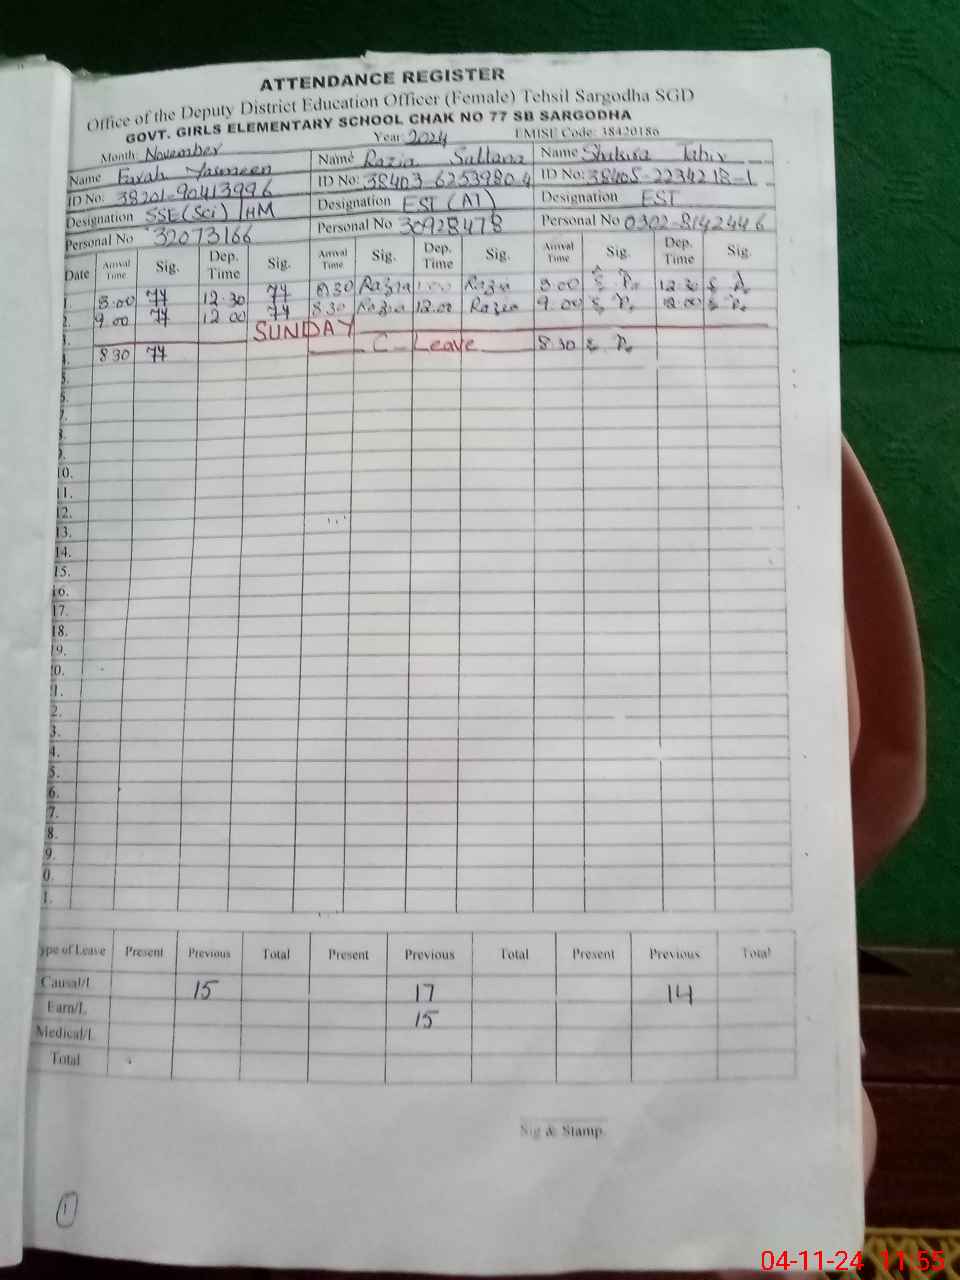 ATTENDANCE REGISTER
Office of the Deputy District Education Officer (Female) Tehsil Sargodha SGD
GOVT. GIRLS ELEMENTARY SCHOOL CHAK NO 77 SB SARGODHA
Month: November Year: 2024 EMISE Code: 38420186
Name Farah Yasmeen Name Razia Sultana Name Tahir
ID No: 38201-90413996 ID No: 38403-62539804 ID No: 38405-2234218-1
Designation SSE(Sci) HM Designation EST (AT) Designation EST
Personal No 32073166 Personal No 30928478 Personal No 0302-8142446
Date Arrival Time Sig. Dep. Time Sig. Arrival Time Sig. Dep. Time Sig. Arrival Time Sig. Dep. Time Sig.
1. 8:00 12:30 8:30 Razia Razia 8:00 12:30
2. 9:00 12:00 8:30 Razia 12:00 Razia 9:00 12:00
3. SUNDAY
4. 8:30 C-Leave 8:30
5.
6.
7.
8.
9.
10.
11.
12.
13.
14.
15.
16.
17.
18.
9.
0.
1.
2.
3.
4.
5.
6.
7.
8.
9.
0.
1.
ype of Leave Present Previous Total Present Previous Total Present Previous Total
Causal/L 15 17 14
Earn/L 15
Medical/L
Total
Sig & Stamp.
1
04-11-24 11:55